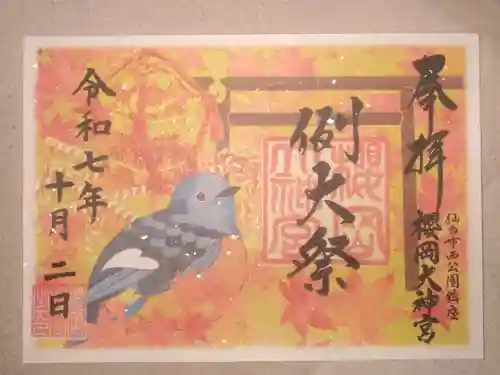 奉拝
仙台市西公園鎮座
櫻岡大神宮
例大祭
令和七年
十月二日